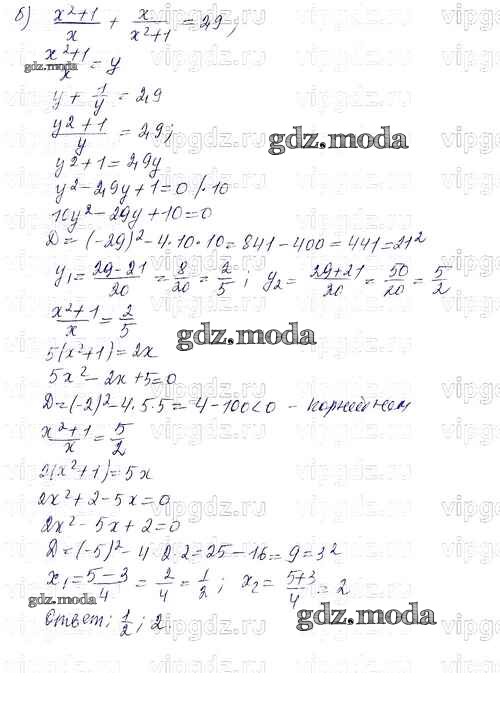 б) x²+1/x + x/x²+1 = 2,9;
x²+1/x = y
y + 1/y = 2,9
y²+1/y = 2,9;
y²+1 = 2,9y
y² - 2,9y + 1 = 0 /·10
10y² - 29y + 10 = 0
D = (-29)² - 4·10·10 = 841 - 400 = 441 = 21²
y₁ = 29-21/20 = 8/20 = 2/5 ; y₂ = 29+21/20 = 50/20 = 5/2
x²+1/x = 2/5
5(x²+1) = 2x
5x² - 2x + 5 = 0
D = (-2)² - 4·5·5 = 4 - 100 < 0 - корней нет
x²+1/x = 5/2
2(x²+1) = 5x
2x² + 2 - 5x = 0
2x² - 5x + 2 = 0
D = (-5)² - 4·2·2 = 25 - 16 = 9 = 3²
x₁ = 5-3/4 = 2/4 = 1/2 ; x₂ = 5+3/4 = 2
Ответ: 1/2 ; 2
gdz.moda
vipgdz.ru